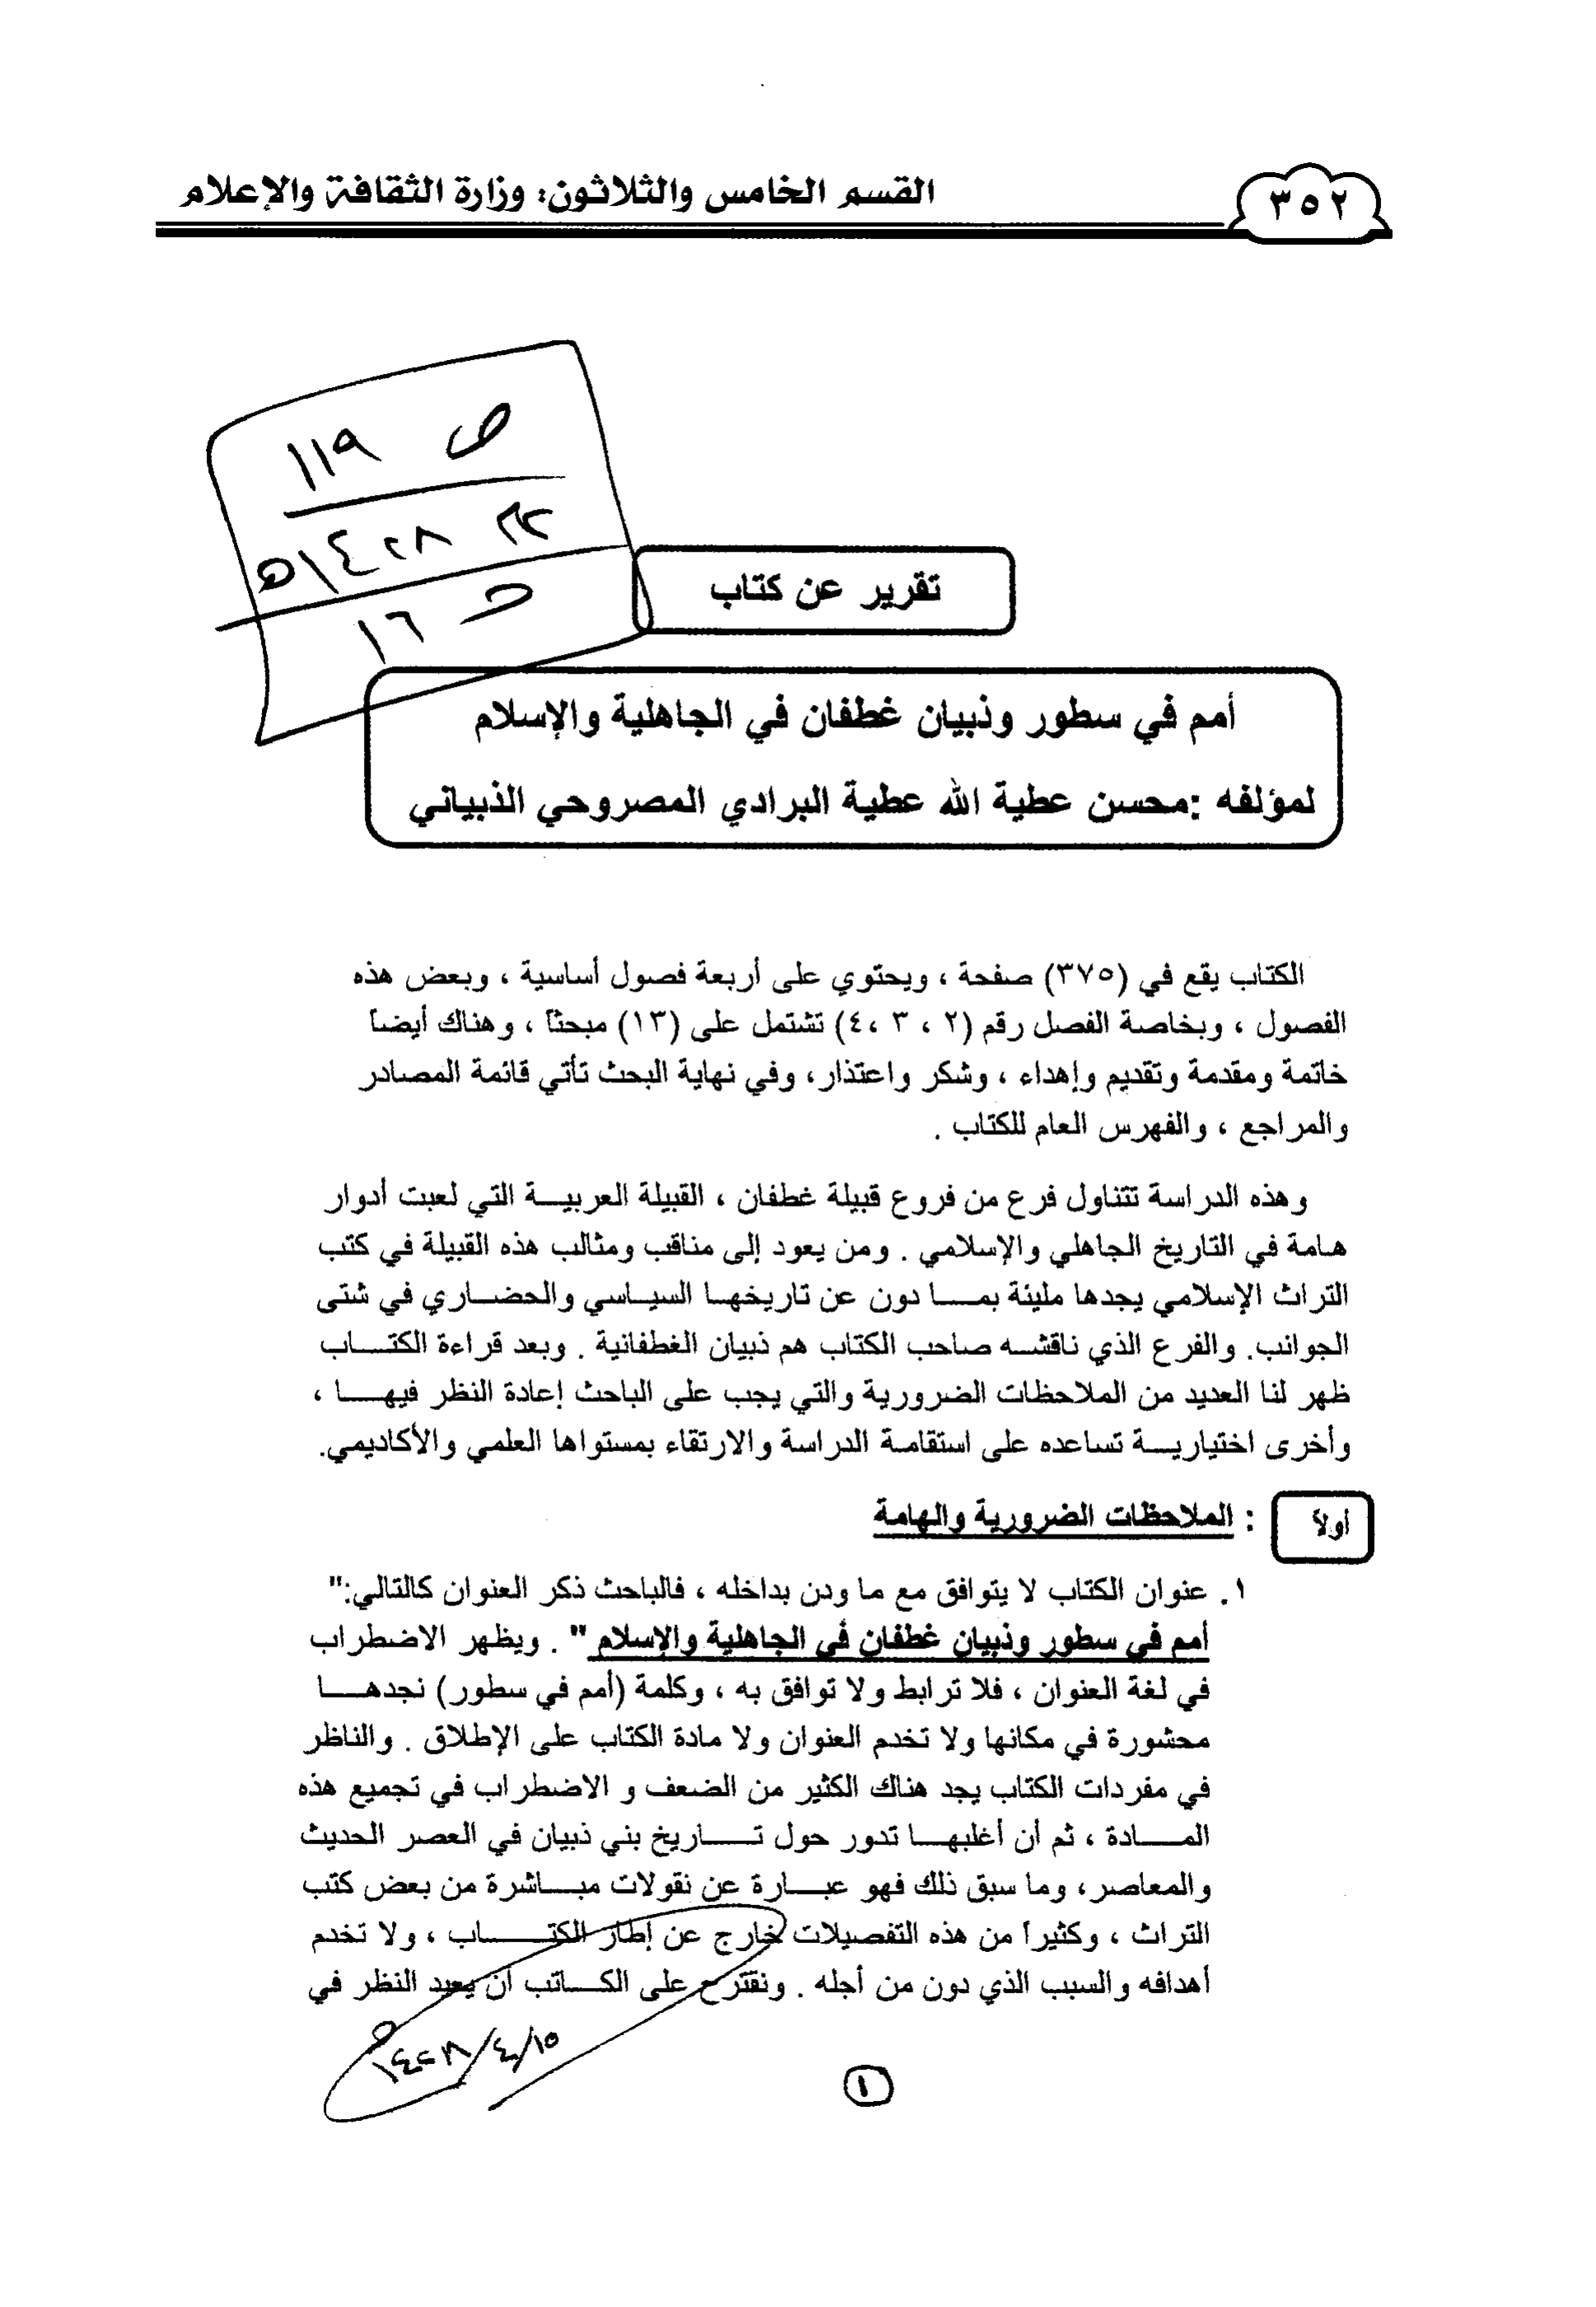 ٣٥٢
القسم الخامس والثلاثون: وزارة الثقافة والإعلام
ص ١١٩
١٤٢٨هـ
١٦
تقرير عن كتاب
أمم في سطور وذبيان غطفان في الجاهلية والإسلام
لمؤلفه :محسن عطية الله عطية البرادي المصروحي الذبياني
الكتاب يقع في (٣٧٥) صفحة ، ويحتوي على أربعة فصول أساسية ، وبعض هذه
الفصول ، وبخاصة الفصل رقم (٢ ، ٣ ،٤) تشتمل على (١٣) مبحثاً ، وهناك أيضاً
خاتمة ومقدمة وتقديم وإهداء ، وشكر واعتذار، وفي نهاية البحث تأتي قائمة المصادر
والمراجع ، والفهرس العام للكتاب .
وهذه الدراسة تتناول فرع من فروع قبيلة غطفان ، القبيلة العربية التي لعبت أدوار
هامة في التاريخ الجاهلي والإسلامي . ومن يعود إلى مناقب ومثالب هذه القبيلة في كتب
التراث الإسلامي يجدها مليئة بما دون عن تاريخها السياسي والحضاري في شتى
الجوانب. والفرع الذي ناقشه صاحب الكتاب هم ذبيان الغطفانية . وبعد قراءة الكتاب
ظهر لنا العديد من الملاحظات الضرورية والتي يجب على الباحث إعادة النظر فيها ،
وأخرى اختيارية تساعده على استقامة الدراسة والارتقاء بمستواها العلمي والأكاديمي.
أولاً : الملاحظات الضرورية والهامة
١. عنوان الكتاب لا يتوافق مع ما ودن بداخله ، فالباحث ذكر العنوان كالتالي:"
أمم في سطور وذبيان غطفان في الجاهلية والإسلام " . ويظهر الاضطراب
في لغة العنوان ، فلا ترابط ولا توافق به ، وكلمة (أمم في سطور) نجدها
محشورة في مكانها ولا تخدم العنوان ولا مادة الكتاب على الإطلاق . والناظر
في مفردات الكتاب يجد هناك الكثير من الضعف و الاضطراب في تجميع هذه
المادة ، ثم أن أغلبها تدور حول تاريخ بني ذبيان في العصر الحديث
والمعاصر، وما سبق ذلك فهو عبارة عن نقولات مباشرة من بعض كتب
التراث ، وكثيراً من هذه التفصيلات خارج عن إطار الكتاب ، ولا تخدم
أهدافه والسبب الذي دون من أجله . ونقترح على الكاتب أن يعيد النظر في
١٤٢٨/٤/١٥
١